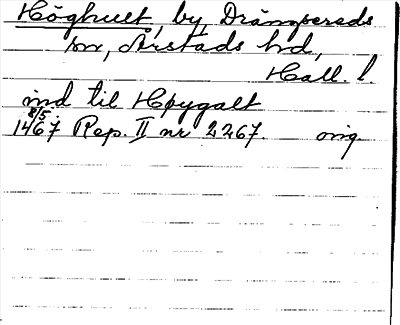 Höghult, by, Drängsereds
sn, Årstads hd,
Hall. l.
ind til Høygalt
8/5
1467 Rep. II nr 2267. orig.